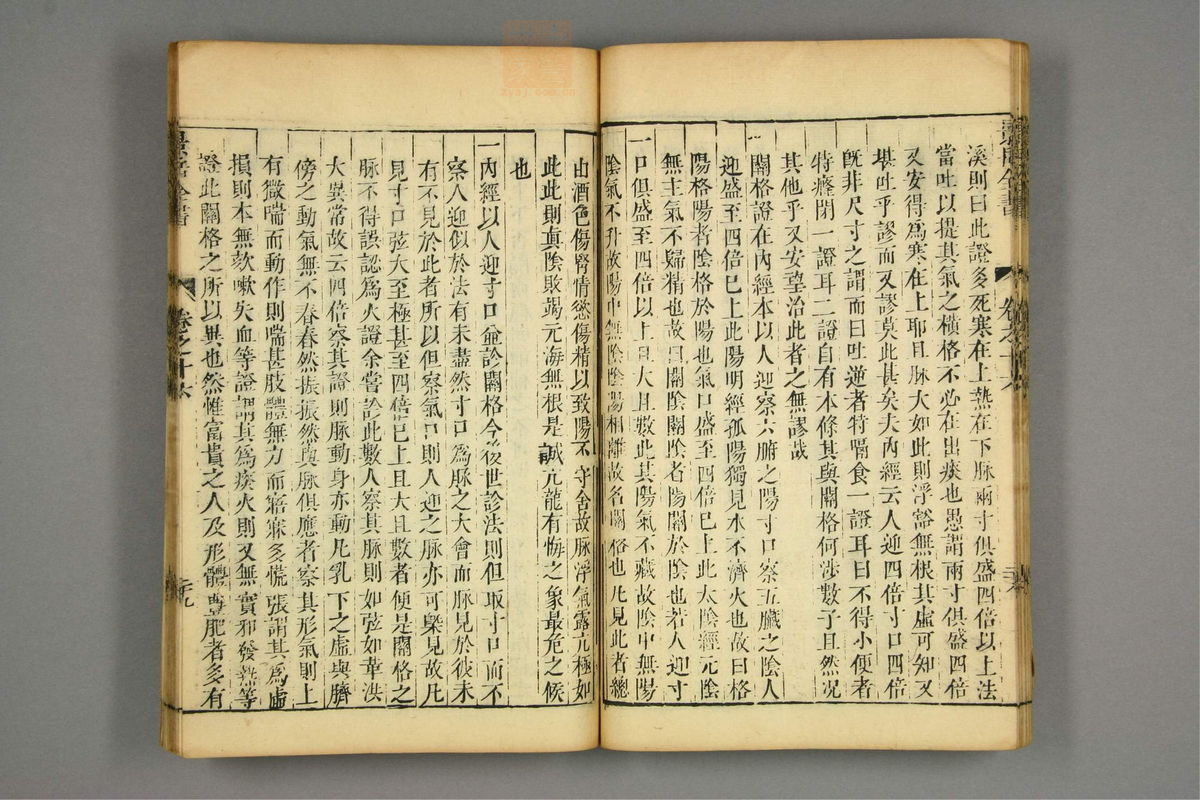 溪則曰此證多死寒在上熱在下脉兩寸俱盛四倍以上法
當吐以提其氣之橫格不必在出痰也愚謂兩寸俱盛四倍
又安得爲寒在上耶且脉大如此則浮豁無根其虛可知又
堪吐乎謬而又謬莫此甚矣夫內經云人迎四倍寸口四倍
旣非尺寸之謂而曰吐逆者特噎食一證耳曰不得小便者
特癃閉一證耳二證自有本條其與關格何涉數子且然况
其他乎又安望治此者之無謬哉
一關格證在內經本以人迎察六腑之陽寸口察五臟之陰人
迎盛至四倍已上此陽明經孤陽獨見水不濟火也故曰格
陽格陽者陰格於陽也氣口盛至四倍已上此太陰經元陰
無主氣不歸精也故曰關陰關陰者陽關於陰也若人迎寸
口俱盛至四倍以上且大且數此其陽氣不藏故陰中無陽
陰氣不升故陽中無陰陰陽相離故名關格也凡見此者總
由酒色傷腎情慾傷精以致陽不守舍故脉浮氣露亢極如
此此則眞陰敗竭元海無根是誠亢龍有悔之象最危之候
也
一內經以人迎寸口並診關格今後世診法則但取寸口而不
察人迎似於法有未盡然寸口爲脉之大會而脉見於彼未
有不見於此者所以但察氣口則人迎之脉亦可槩見故凡
見寸口弦大至極甚至四倍已上且大且數者便是關格之
脉不得誤認爲火證余嘗診此數人察其脉則如弦如革洪
大異常故云四倍察其證則脉動身亦動凡乳下之虛與臍
傍之動氣無不舂舂然振振然與脉俱應者察其形氣則上
有微喘而動作則喘甚肢體無力而寤寐多慌張謂其爲虛
損則本無欬嗽失血等證謂其爲痰火則又無實邪發熱等
證此關格之所以異也然惟富貴之人及形體豐肥者多有
景岳全書
卷之十六
景岳全書
卷之十六